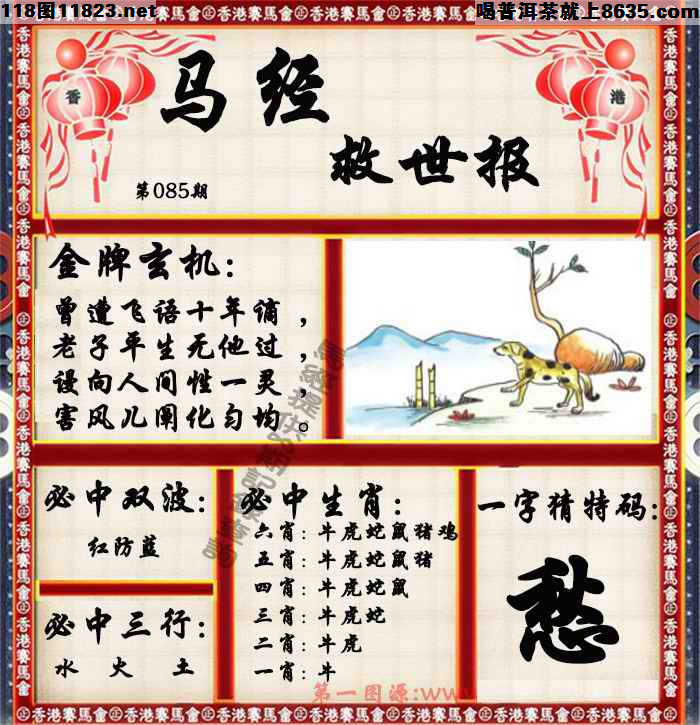 118图11823.net
喝普洱茶就上8635.com
香
港
马经
救世报
第085期
金牌玄机:
曾遭飞语十年谪,
老子平生无他过,
谩向人间性一灵,
害风儿阐化匀均。
必中双波:
红防蓝
必中三行:
水 火 土
必中生肖:
六肖:牛虎蛇鼠猪鸡
五肖:牛虎蛇鼠猪
四肖:牛虎蛇鼠
三肖:牛虎蛇
二肖:牛虎
一肖:牛
一字猜特码:
愁
第一图源:www
香港赛馬會